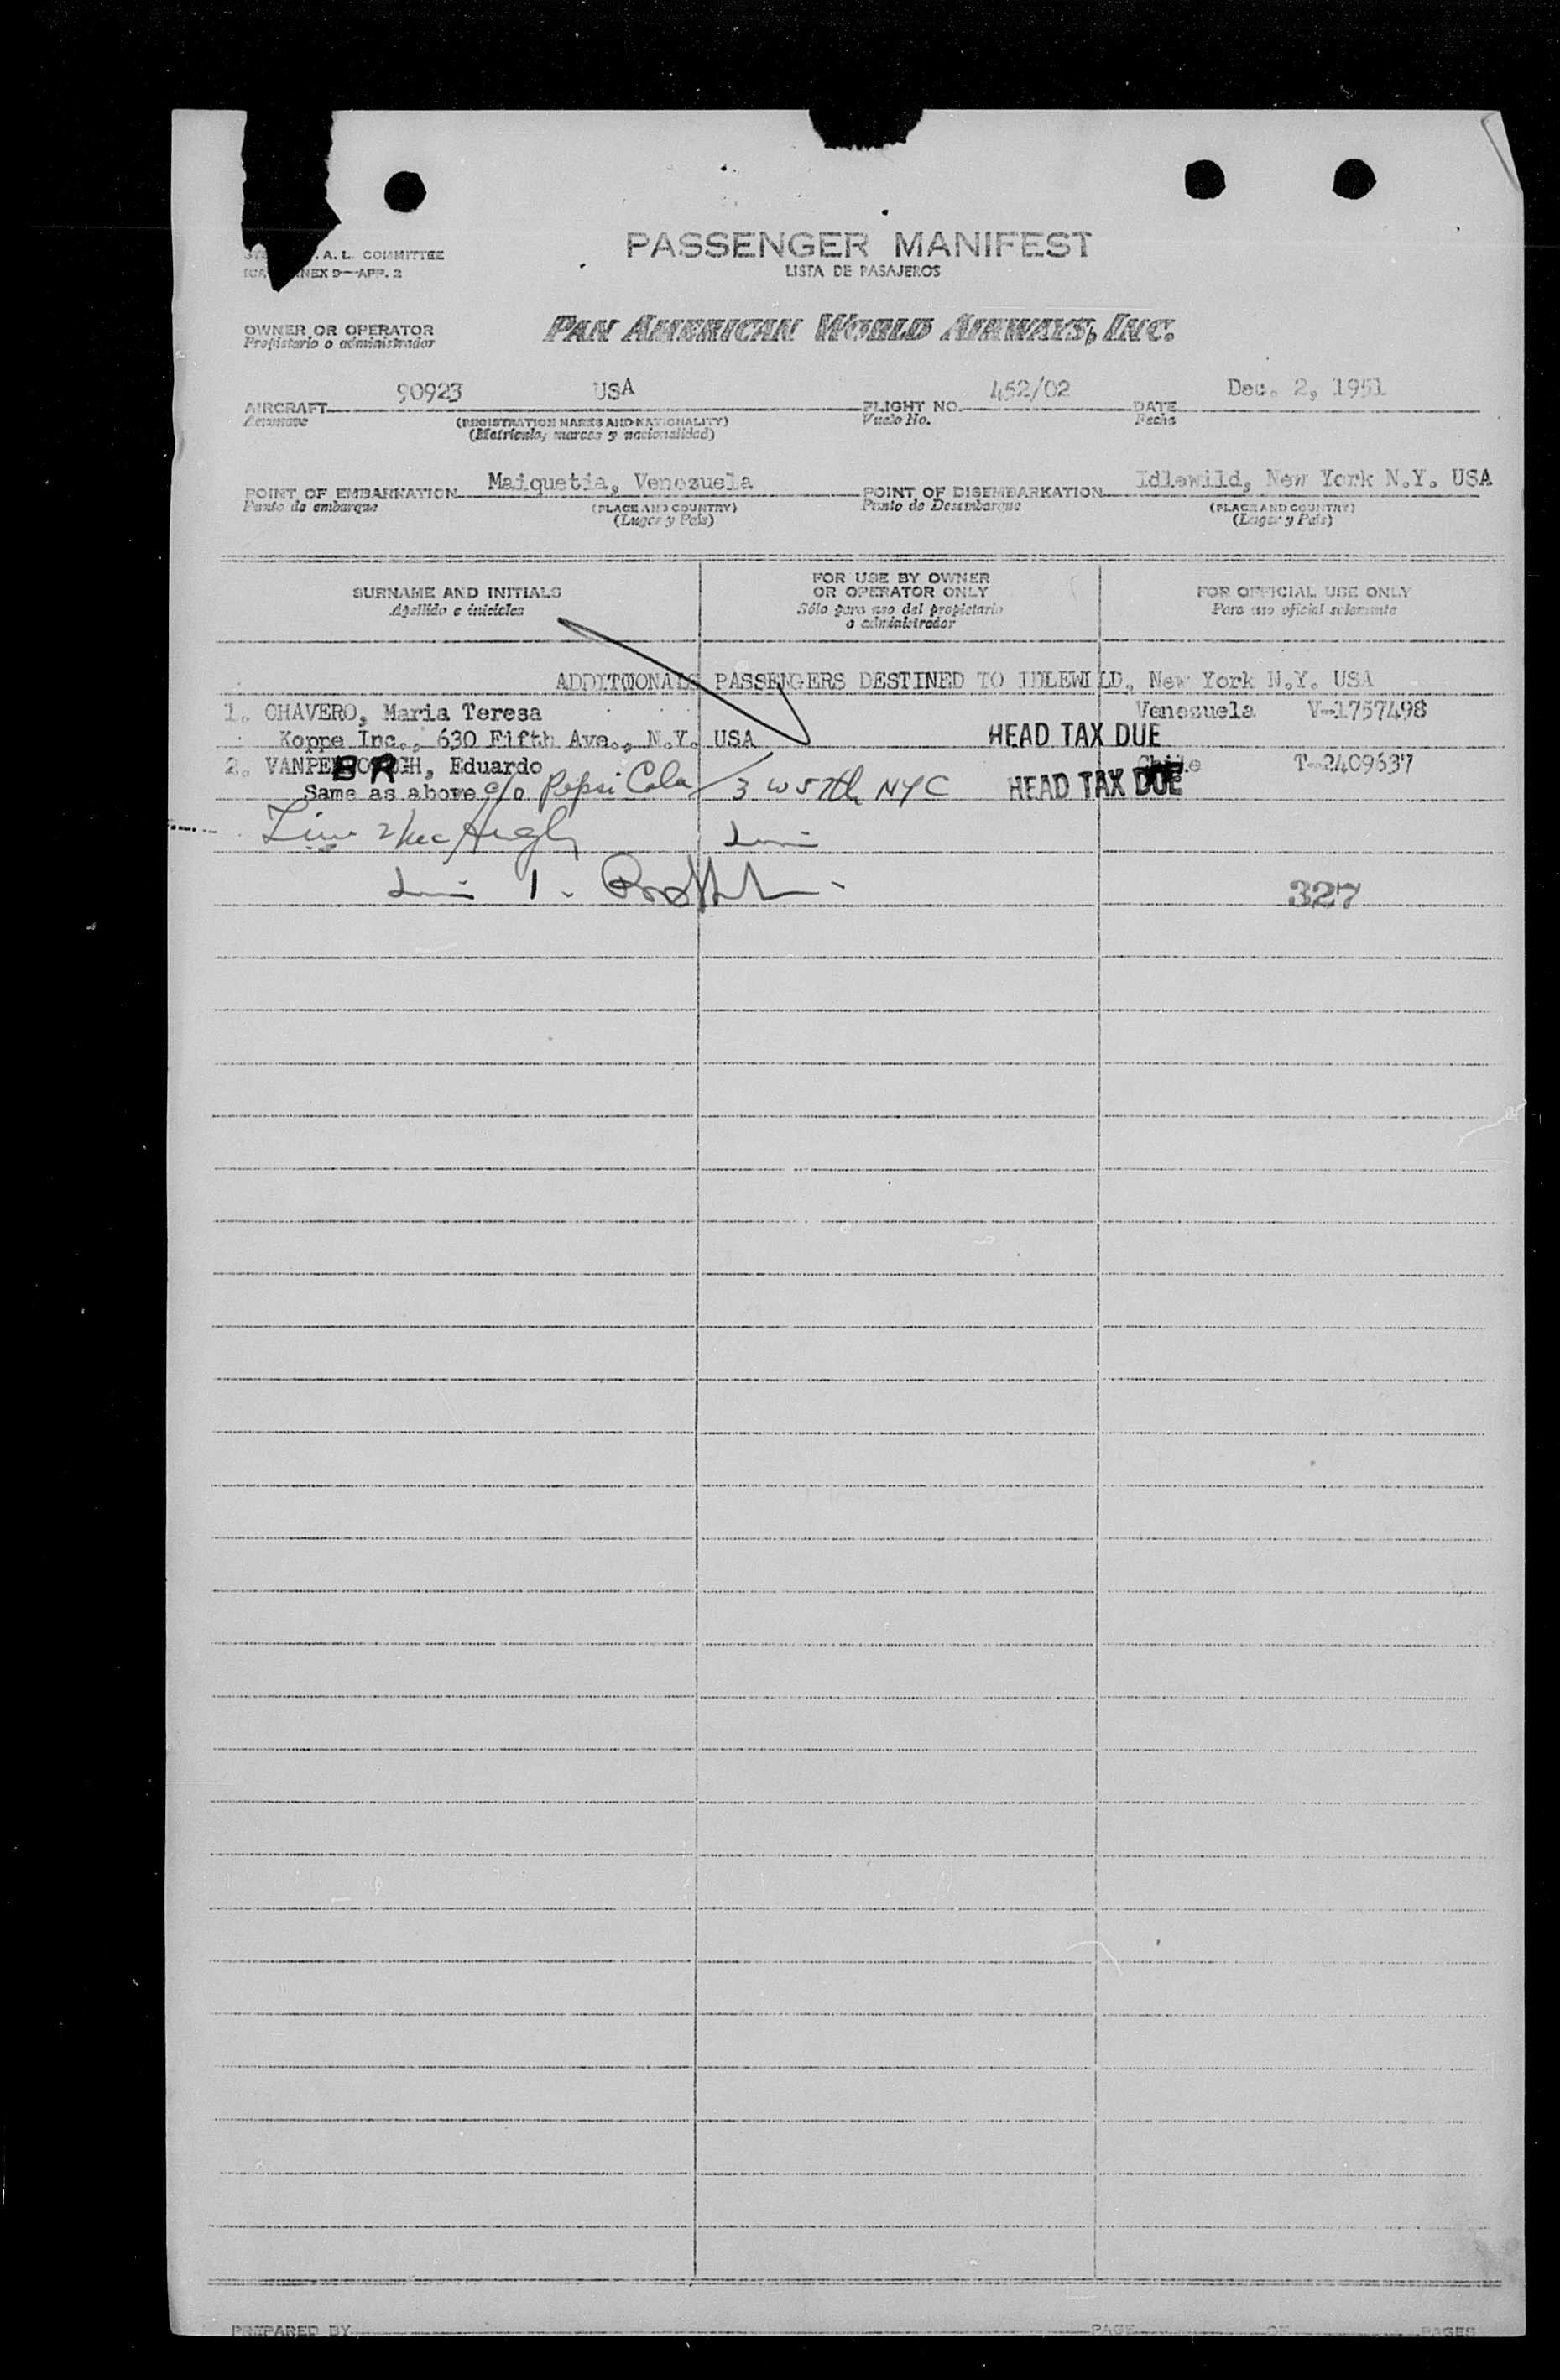 PASSENGER MANIFEST
LISTA DE PASAJEROS
A. L. COMMITTEE
ANNEX 9—APP. 2
OWNER OR OPERATOR
Propietario o administrador
PAN AMERICAN WORLD AIRWAYS, INC.
AIRCRAFT 90923 USA FLIGHT NO. 452/02 DATE Dec. 2, 1951
Aeronave (REGISTRATION MARKS AND NATIONALITY) Vuelo No. Fecha
(Matrícula, marcas y nacionalidad)
POINT OF EMBARKATION Maiquetia, Venezuela POINT OF DISEMBARKATION Idlewild, New York N.Y. USA
Punto de embarque (PLACE AND COUNTRY) Punto de Desembarque (PLACE AND COUNTRY)
(Lugar y País) (Lugar y País)
SURNAME AND INITIALS
Apellido e iniciales
FOR USE BY OWNER
OR OPERATOR ONLY
Sólo para uso del propietario
o administrador
FOR OFFICIAL USE ONLY
Para uso oficial solamente
ADDITIONALS PASSENGERS DESTINED TO IDLEWILD, New York N.Y. USA
1. CHAVERO, Maria Teresa Venezuela V-1757498
Koppe Inc., 630 Fifth Ave., N.Y. USA HEAD TAX DUE
2. Eduardo Chile T-2409637
Same as above c/o Pepsi Cola 3 W 57th NYC HEAD TAX DUE
327
PREPARED BY PAGE OF PAGES